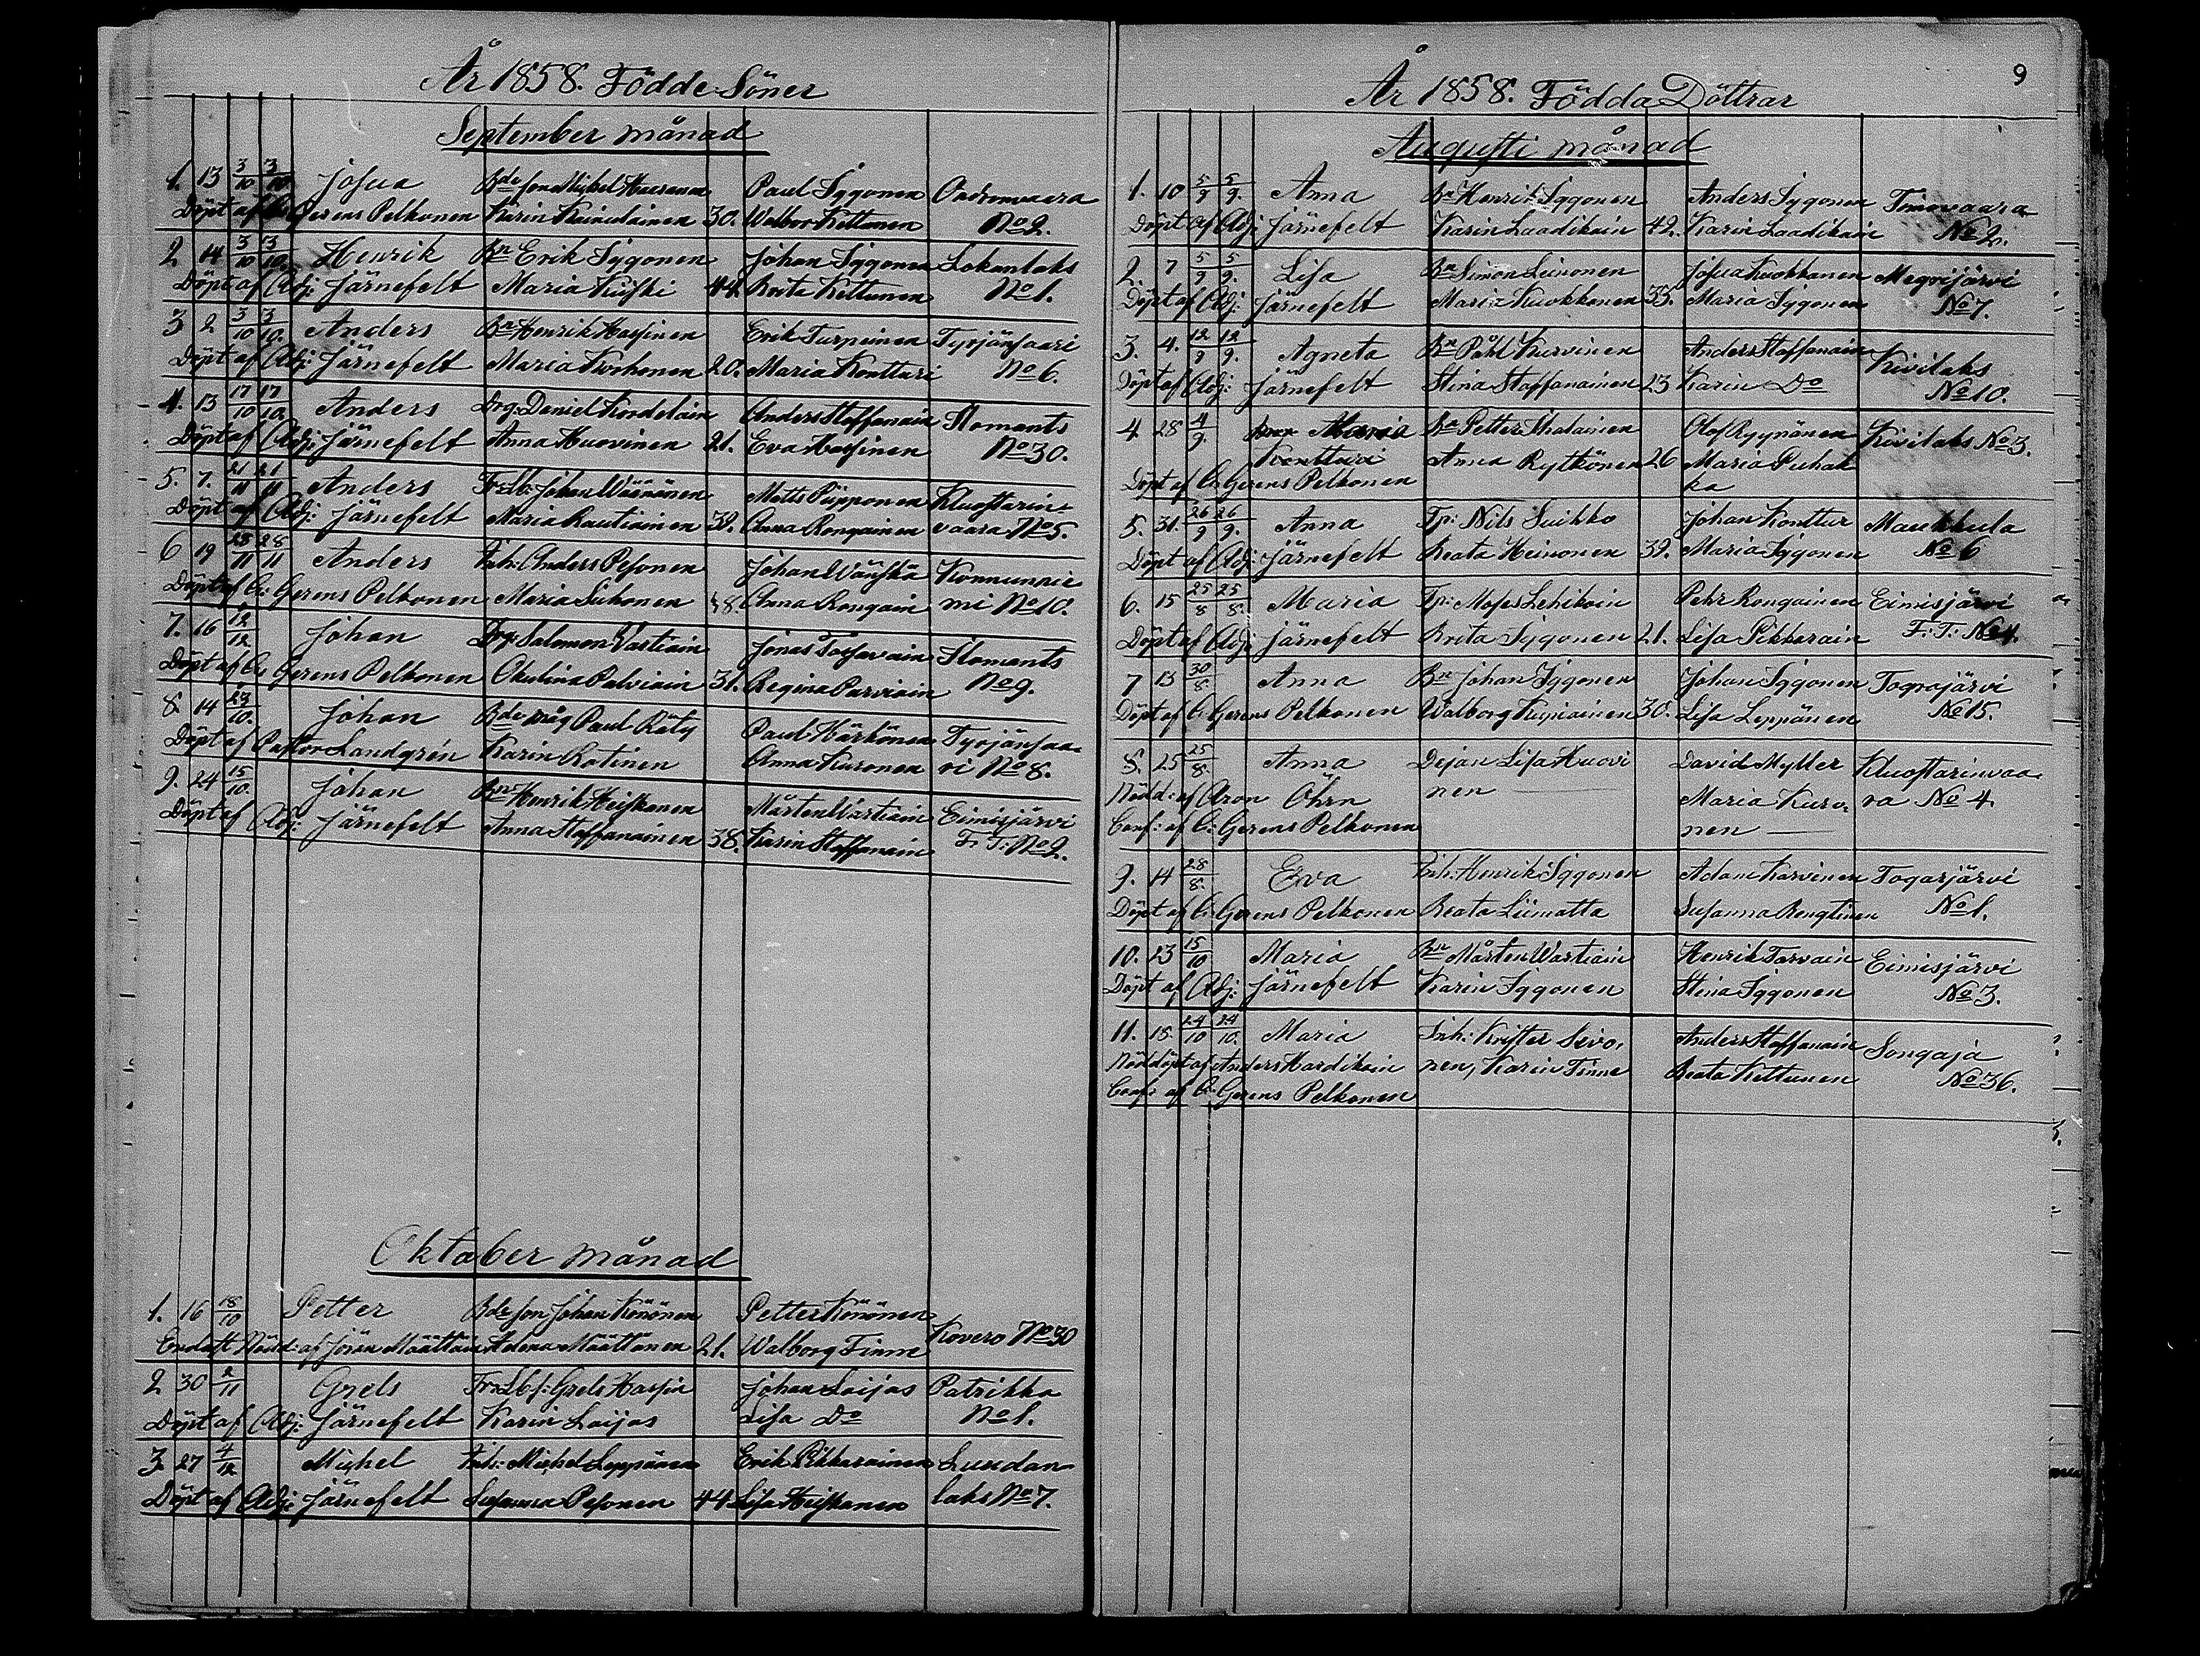 År 1858. Födde Söner
September månad
1. 13 3/10 3/10 Josua Bde son Michel Paul Iggonen
Döpt af C: Gerens Pelkonen Karin Kainulainen 30. Walbor Kettunen No 2.
2 14 3/10 13/10 Henrik Bn Erik Iggonen Johan Iggonen Lokanlaks
Döpt af Adj: Järnefelt Maria 44 Brita Kettunen No 1.
3 2 3/10 3/10. Anders Bn Henrik Hassinen Erik Turpeinen Tyrjänsaari
Döpt af Adj: Järnefelt Maria Korhonen 20. Maria Kontturi No 6.
4. 13 17/10 17/10 Anders Drg: Daniel Kordelain Anders Staffanain Ilomants
Döpt af Adj: Järnefelt Anna Huovinen 21. Eva Hassinen No 30.
5. 7. 21/11 21/11 Anders Johan Wäänänen Matts Piipponen Kluostarin-
Döpt af Adj: Järnefelt Maria Rautiainen 39. Anna Rongainen vaara No 5.
6 19 25/11 28/11 Anders Inh: Anders Pesonen Johan Wänskä Konnunnie
Döpt af C: Gerens Pelkonen Maria Sihonen 48. Anna Rongain mi No 10.
7. 16 12/12 Johan Drg: Salomon Wastiain Jonas Toisavain Ilomants
Döpt af C: Gerens Pelkonen Okulina Palviain 31. Regina Parviain No 9.
8. 14 23/10. Johan Bde måg Paul Räty Paul Härkönen Tyrjänsaa-
Döpt af Pastor Landgrén Karin Rotinen Anna Kuronen ri No 8.
9. 24 15/10. Johan Bn Henrik Heiskanen Mårten Wartiain Eimisjärvi
Döpt af Adj: Järnefelt Anna Staffanainen 38. Karin Staffanain F: T: No 2.
Oktober månad
1. 16 18/10 Petter Bde son Johan Könönen Petter Könönen
Endast Nödd: af Jöran Määttäin Helena Määttänen 21. Walborg Finne Kovero No 30
2 30 2/11 Grels Grels Hassin Johan Laijas Patrikka
Döpt af Adj: Järnefelt Karin Laijas Lisa Do No 1.
3. 27 4/12 Michel Inh: Michel Leppänen Erik Pikkarainen Luudan
Döpt af Adj: Järnefelt Susanna Pesonen 44 Lisa Heiskanen laks No 7.
9
År 1858. Födda Döttrar
Augusti månad
1. 10 5/9 5/9. Anna Bn Henrik Iggonen Anders Iggonen Timovaara
Döpt af Adj: Järnefelt Karin Laadikain 42. Karin Laadikain No 2.
2. 7 5/9 5/9. Lisa Bn Simon Leinonen Josua Kuokkanen Megrijärvi
Döpt af Adj: Järnefelt Maria Kuokkanen 33. Maria Iggonen No 7.
3. 4. 12/9 12/9. Agneta Bn Påhl Kurvinen Anders Staffanain Kivilaks
Döpt af Adj: Järnefelt Stina Staffanainen 23 Karin Do No 10.
4. 28 4/9. Maria Bn Petter Ihalainen Olof Ryynänen Kivilaks No 3.
Kontturi Anna Rytkönen 26 Maria Puhak
Döpt af C: Gerens Pelkonen ka
5. 31. 26/9 26/9. Anna Tp: Nils Suikko Johan Konttur Maukkula
Döpt af Adj: Järnefelt Beata Heinonen 39. Maria Iggonen No 6
6. 15 25/8 25/8. Maria Tp: Moses Lehikoin Pehr Rongainen Eimisjärvi
Döpt af Adj: Järnefelt Brita Iggonen 21. Lisa Pikkarain F: T: No 4.
7 13 30/8. Anna Bn Johan Iggonen Johan Iggonen Tograjärvi
Döpt af C: Gerens Pelkonen Walborg Kupiainen 30. Lisa Leppänen No 15.
8. 25 25/8. Anna Dejan Lisa Huovi David Myller Kluostarinvaa-
Nödd: af Aron Öhrn nen Maria Kurv: ra No 4.
Conf: af C: Gerens Pelkonen nen
9. 14 28/8. Eva Inh: Henrik Iggonen Adam Karvinen Togarjärvi
Döpt af C: Gerens Pelkonen Beata Liimatta Susanna Rengtinen No 1.
10. 23 15/10 Maria Bn Mårten Wartiain Henrik Tarvain Eimisjärvi
Döpt af Adj: Järnefelt Karin Iggonen Stina Iggonen No 3.
11. 15 24/10 24/10. Maria Inh: Krister Sivo- Anders Staffanain Songaja
Nöddöpt af Anders Hardikain nen, Karin Finne Beata Kettunen No 36.
Conf: af C: Gerens Pelkonen